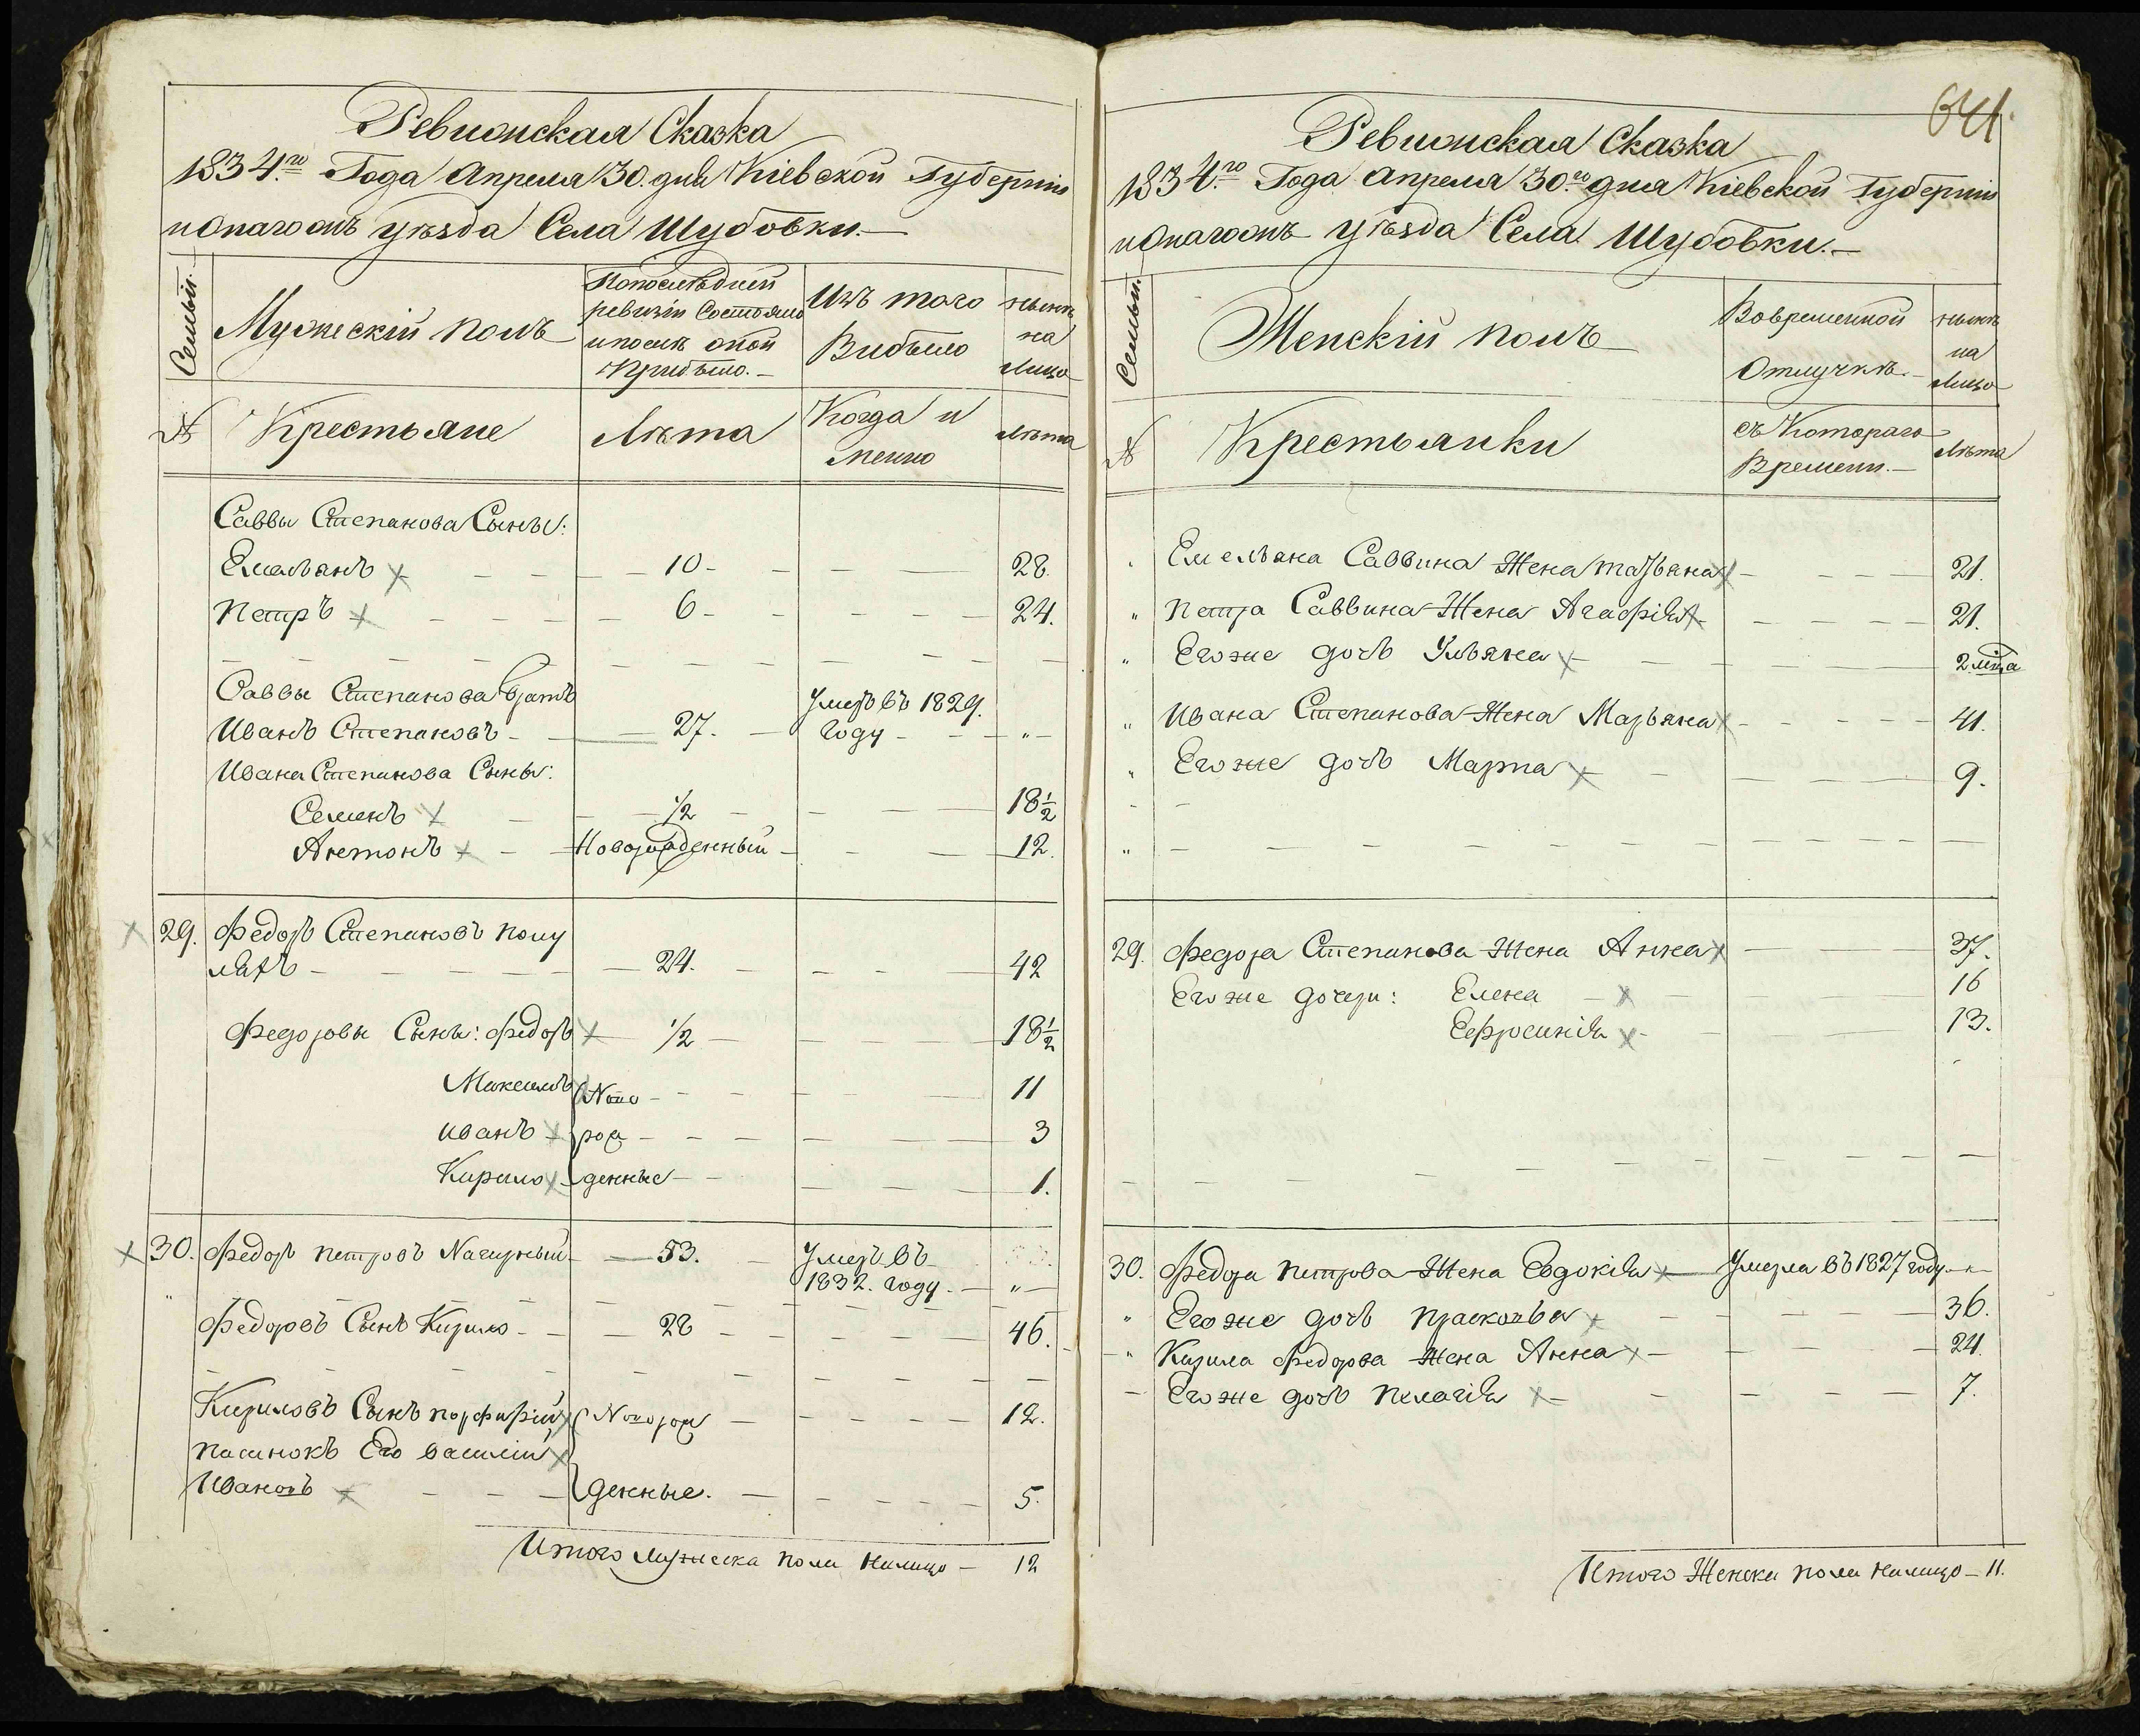 Ревизская Сказка
1834го Года Апреля 30. дня Кіевской Губерніи
уѣзда Села Шубовки.
Семьи.
Мужескій полъ
Попослѣдней
ревизіи Состояло
ипослѣ оной
Прибыло.
Изъ того
Выбыло
нынѣ
на
Лицо
№
Крестьяне
Лѣта
Когда и
менно
Лѣта
Саввы Степанова Сыны:
Емельянъ 10 28.
Петръ 6 24.
Саввы Степанова братъ
Иванъ Степановъ 27. Умеръ въ 1829.
году "
Ивана Степанова Сыны:
Семенъ 1/2 18 1/2
Антонъ Новорожденный 12.
29. Федоръ Степановъ
24. 42
Федоровы Сыны: Федоръ 1/2 18 1/2
Максимъ Ново 11
Иванъ рож 3
Кирило денные 1.
30. Федоръ Петровъ 53. Умеръ въ
1832. году. "
Федоровъ Сынъ Кирило 28 46.
Кириловъ Сынъ Порфирій Новорож 12.
Пасинокъ Его Василій
Ивановъ денные. 5.
Итого Мужеска пола Налицо 12
641.
Ревизская Сказка
1834го Года Апреля 30го дня Кіевской Губерніи
уѣзда Села Шубовки.
Семьи.
Женскій полъ
Вовременной
Отлучкѣ.
нынѣ
на
Лицо
№
Крестьянки
съ Котораго
Времени.
Лѣта
Емельяна Саввина Жена Татьяна 21.
" Петра Саввина Жена Агафія 21.
" Егоже дочь Ульяна 2 мца
" Ивана Степанова Жена Марьяна 41.
" Егоже дочь Марта 9.
"
29. Федора Степанова Жена Анна 37.
Егоже дочери: Елена 16
Ефросинія 13.
30. Федора Петрова Жена Евдокія Умерла въ 1827 году "
" Егоже дочь Прасковья 36.
" Кирила Федорова Жена Анна 24.
Егоже дочь Пелагія 7.
Итого Женска пола Налицо 11.